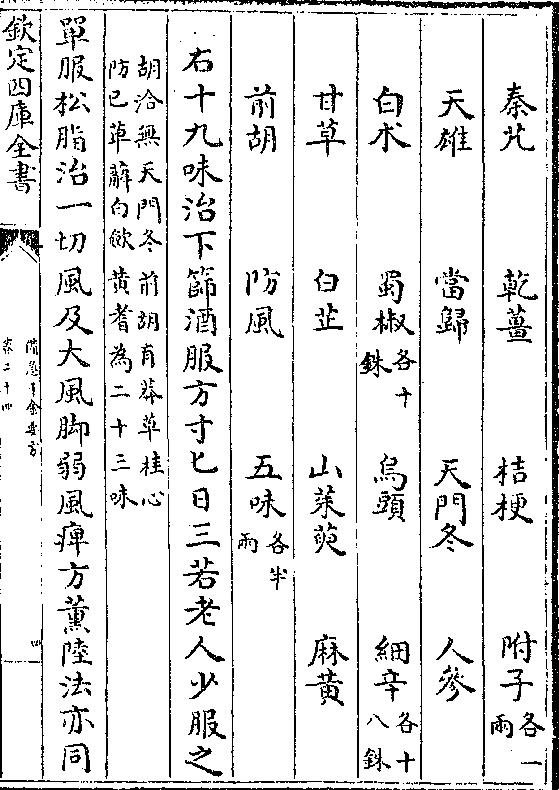 秦艽 乾薑 桔梗 附子各一兩
天雄 當歸 天門冬 人參
白朮 蜀椒各十銖 烏頭 細辛各十八銖
甘草 白芷 山茱萸 麻黃
前胡 防風 五味各半兩
右十九味治下篩酒服方寸匕日三若老人少服之
胡洽無天門冬前胡有莽草桂心
防已萆薢白歛黃耆為二十三味
單服松脂治一切風及大風脚弱風痺方薰陸法亦同
欽定四庫全書
備急千金要方
卷二十四
四